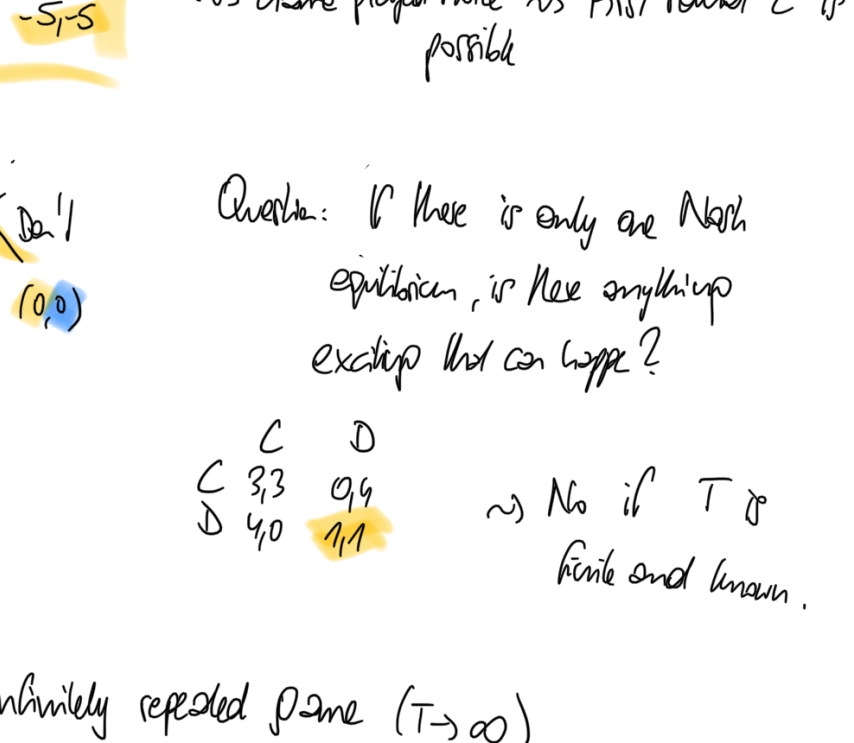 -5,-5
possible
Don't
(0,0)
Question: If there is only one Nash
equilibrium, is there anything
exciting that can happen?
C D
C 3,3 0,4
D 4,0 1,1
~> No if T is
finite and known.
infinitely repeated game (T→∞)